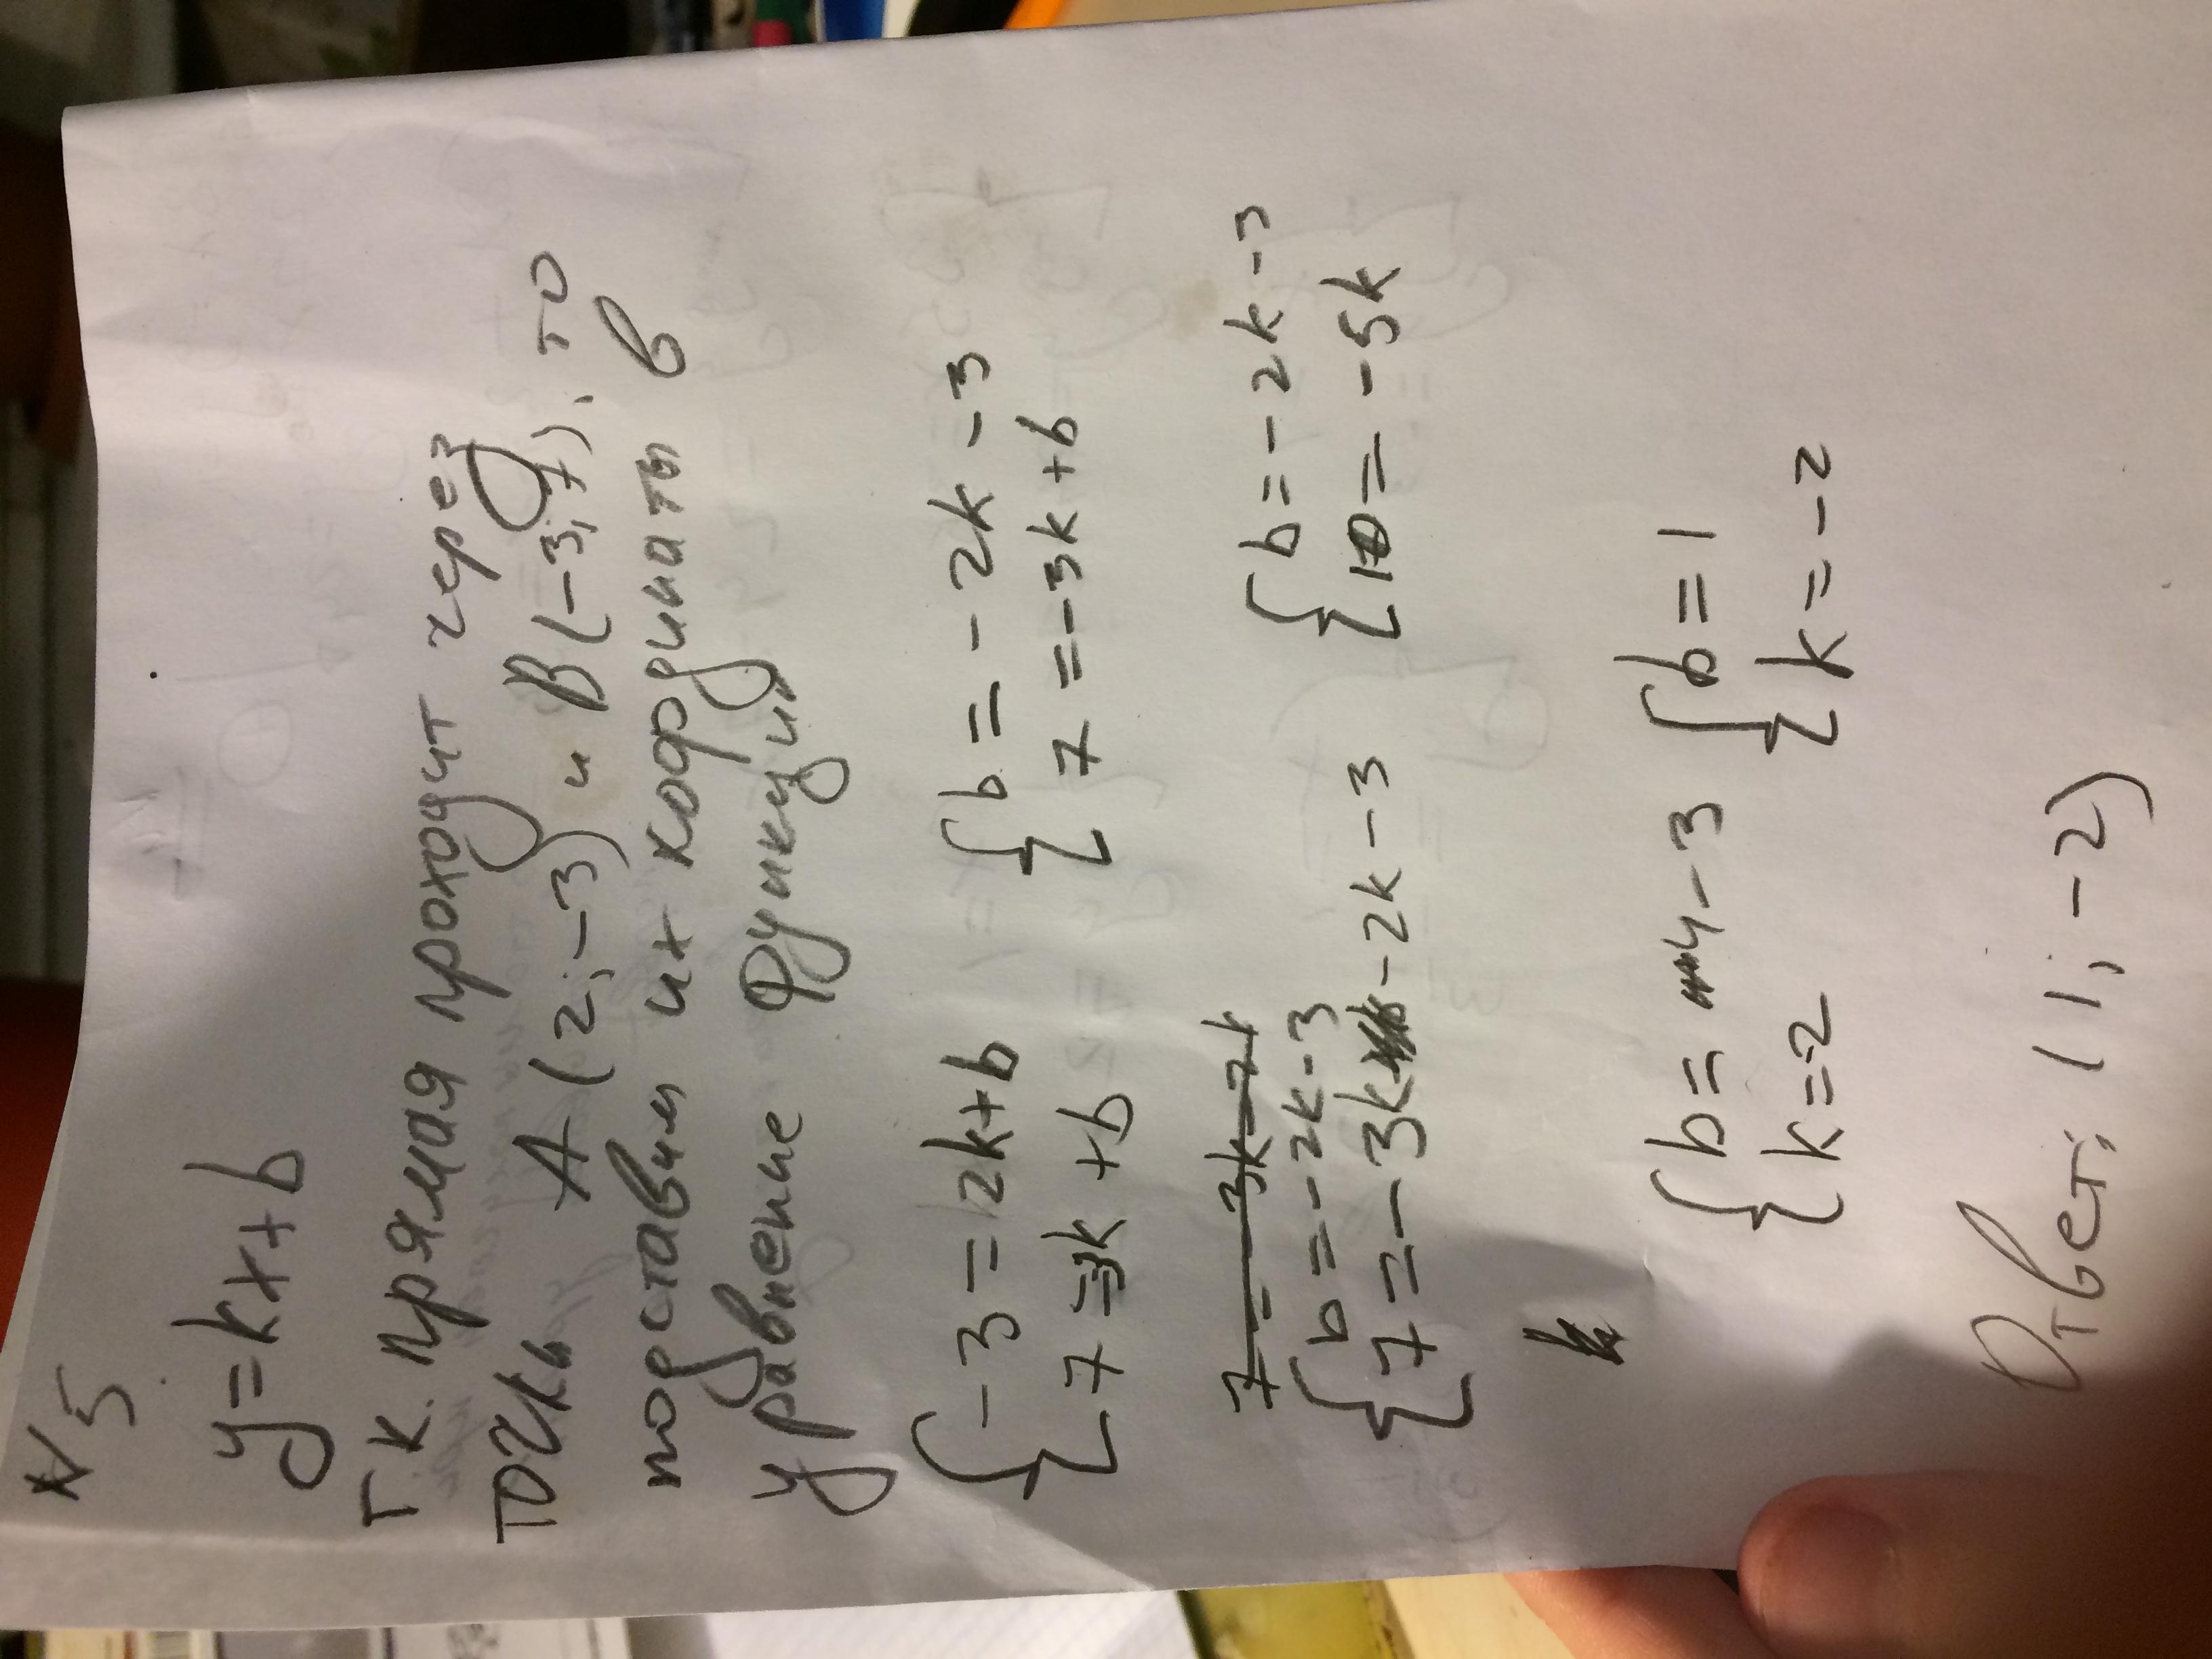 N5
y=kx+b
т.к. прямая проходит через
точки A(2;-3) и B(-3;7), то
подставим их кординаты в
уравнение функции
{-3=2k+b {b=-2k-3
{7=-3k+b {7=-3k+b
7=-3k-7k
{b=-2k-3 {b=-2k-3
{7=-3k-2k-3 {10=-5k
k
{b=4-3 {b=1
{k=-2 {k=-2
Ответ: (1;-2)